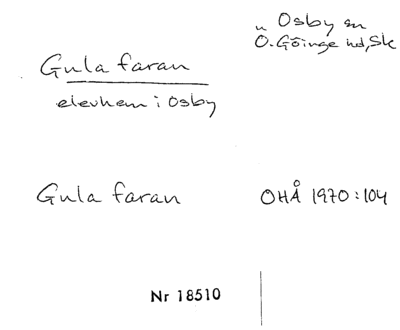 Osby sn
Ö. Göinge hd, Sk
Gula faran
elevhem i Osby
Gula faran
OHÅ 1970:104
Nr 18510